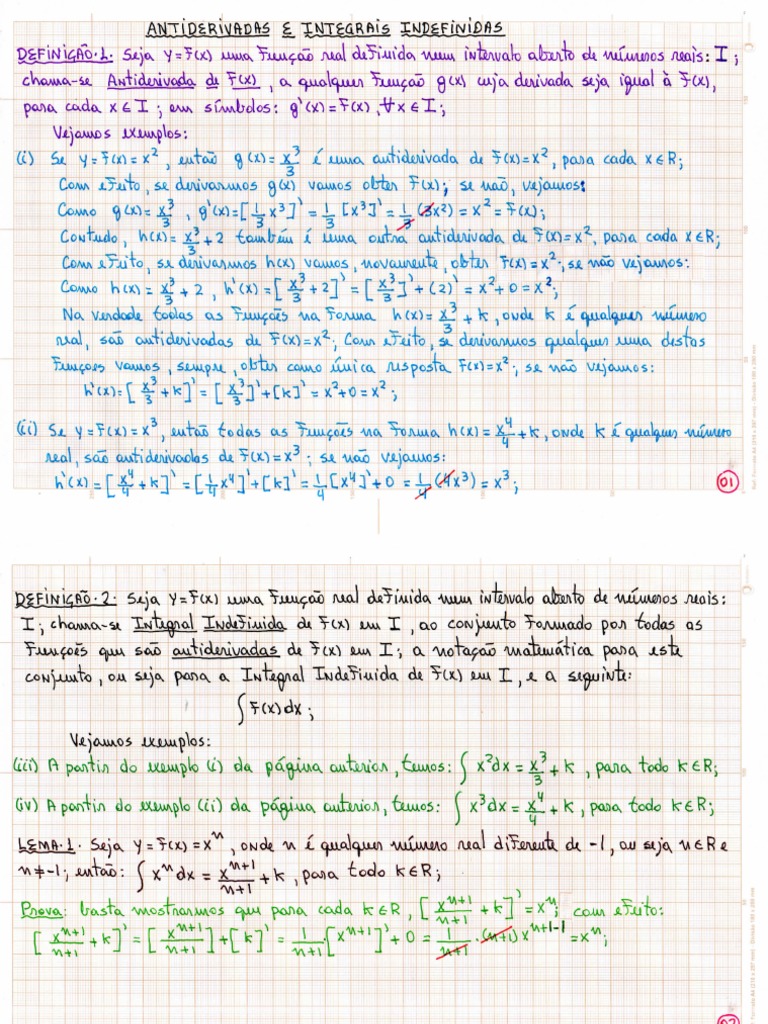 ANTIDERIVADAS E INTEGRAIS INDEFINIDAS
DEFINIÇÃO.1. Seja y=f(x) uma função real definida num intervalo aberto de números reais: I;
chama-se Antiderivada de f(x), a qualquer função g(x) cuja derivada seja igual à f(x),
para cada x∈I; em símbolos: g'(x)=f(x), ∀x∈I;
Vejamos exemplos:
(i) Se y=f(x)=x², então g(x)=x³/3 é uma antiderivada de f(x)=x², para cada x∈R;
Com efeito, se derivarmos g(x) vamos obter f(x); se não, vejamos:
Como g(x)=x³/3, g'(x)=[1/3 x³]'=1/3 [x³]'=1/3 (3x²)=x²=f(x);
Contudo, h(x)=x³/3+2 também é uma outra antiderivada de f(x)=x², para cada x∈R;
Com efeito, se derivarmos h(x) vamos, novamente, obter f(x)=x²; se não vejamos:
Como h(x)=x³/3+2, h'(x)=[x³/3+2]'=[x³/3]'+(2)'=x²+0=x²;
Na verdade todas as funções na forma h(x)=x³/3+k, onde k é qualquer número
real, são antiderivadas de f(x)=x²; Com efeito, se derivarmos qualquer uma destas
funções vamos, sempre, obter como única resposta f(x)=x²; se não vejamos:
h'(x)=[x³/3+k]'=[x³/3]'+[k]'=x²+0=x²;
(ii) Se y=f(x)=x³, então todas as funções na forma h(x)=x⁴/4+k, onde k é qualquer número
real, são antiderivadas de f(x)=x³; se não vejamos:
h'(x)=[x⁴/4+k]'=[1/4 x⁴]'+[k]'=1/4 [x⁴]'+0=1/4 (4x³)=x³;
01
DEFINIÇÃO.2. Seja y=f(x) uma função real definida num intervalo aberto de números reais:
I; chama-se Integral Indefinida de f(x) em I, ao conjunto formado por todas as
funções que são antiderivadas de f(x) em I; a notação matemática para este
conjunto, ou seja para a Integral Indefinida de f(x) em I, e a seguinte:
∫f(x)dx;
Vejamos exemplos:
(iii) A partir do exemplo (i) da página anterior, temos: ∫x²dx=x³/3+k, para todo k∈R;
(iv) A partir do exemplo (ii) da página anterior, temos: ∫x³dx=x⁴/4+k, para todo k∈R;
LEMA.1. Seja y=f(x)=xⁿ, onde n é qualquer número real diferente de -1, ou seja n∈R e
n≠-1; então: ∫xⁿdx=xⁿ⁺¹/n+1+k, para todo k∈R;
Prova: basta mostrarmos que para cada k∈R, [xⁿ⁺¹/n+1+k]'=xⁿ; com efeito:
[xⁿ⁺¹/n+1+k]'=[xⁿ⁺¹/n+1]+[k]'=1/n+1·[xⁿ⁺¹]'+0=1/n+1·(n+1)xⁿ⁺¹⁻¹=xⁿ;
02